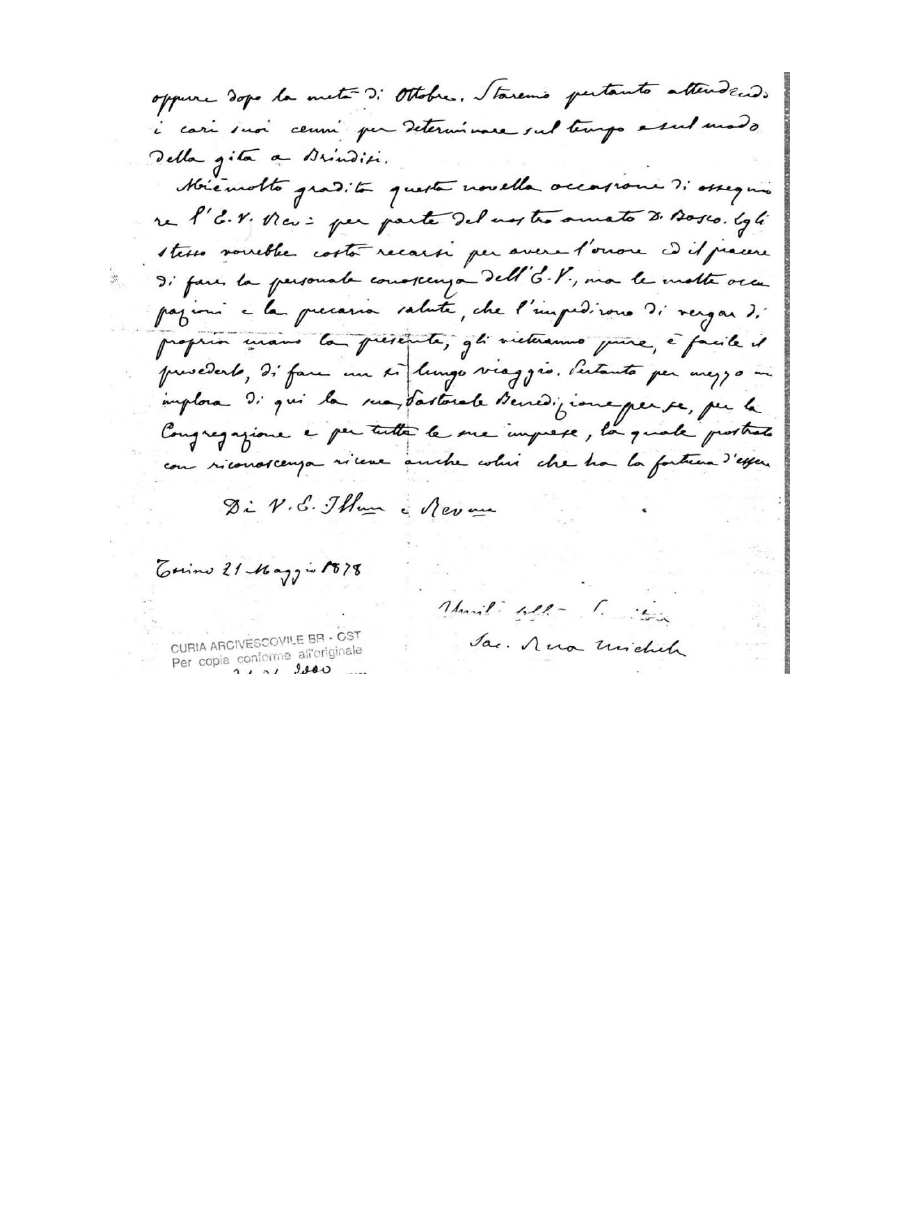 oppure dopo la metà di Ottobre. Staremo pertanto attendendo
i cari suoi cenni per determinare sul tempo e sul modo
della gita a Brindisi.
Mi è molto gradita questa novella occasione di ossequia
re l'E. V. Rev= per parte del nostro amato D. Bosco. Egli
stesso vorrebbe costà recarsi per avere l'onore ed il piacere
di fare la personale conoscenza dell'E. V., ma le molte occu
pazioni e la precaria salute, che l'impedirono di vergar di
propria mano la presente, gli vieteranno pure, è facile il
prevederlo, di fare un sì lungo viaggio. Pertanto per mezzo m
implora di qui la sua Pastorale Benedizione per se, per la
Congregazione e per tutte le sue imprese, la quale prostrato
con riconoscenza riceve anche colui che ha la fortuna d'esser
Di V. E. Illma e Revma
Torino 21 Maggio 1878
Umil
Sac. Rua Michele
CURIA ARCIVESCOVILE BR - OST
Per copia conforme all'originale
2000